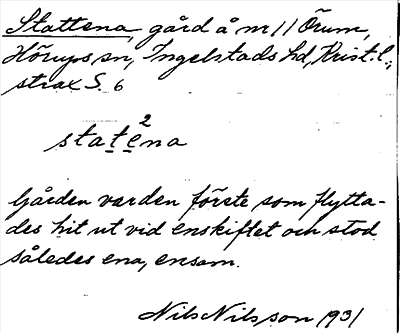 Stattena, gård å nr 11 Örum,
Hörups sn, Ingelstads hd, Krist. l.,
strax S. 6
statena
2
Gården varden förste som flytta-
des hit ut vid enskiftet och stod
således ena, ensam.
Nils Nilsson 1931